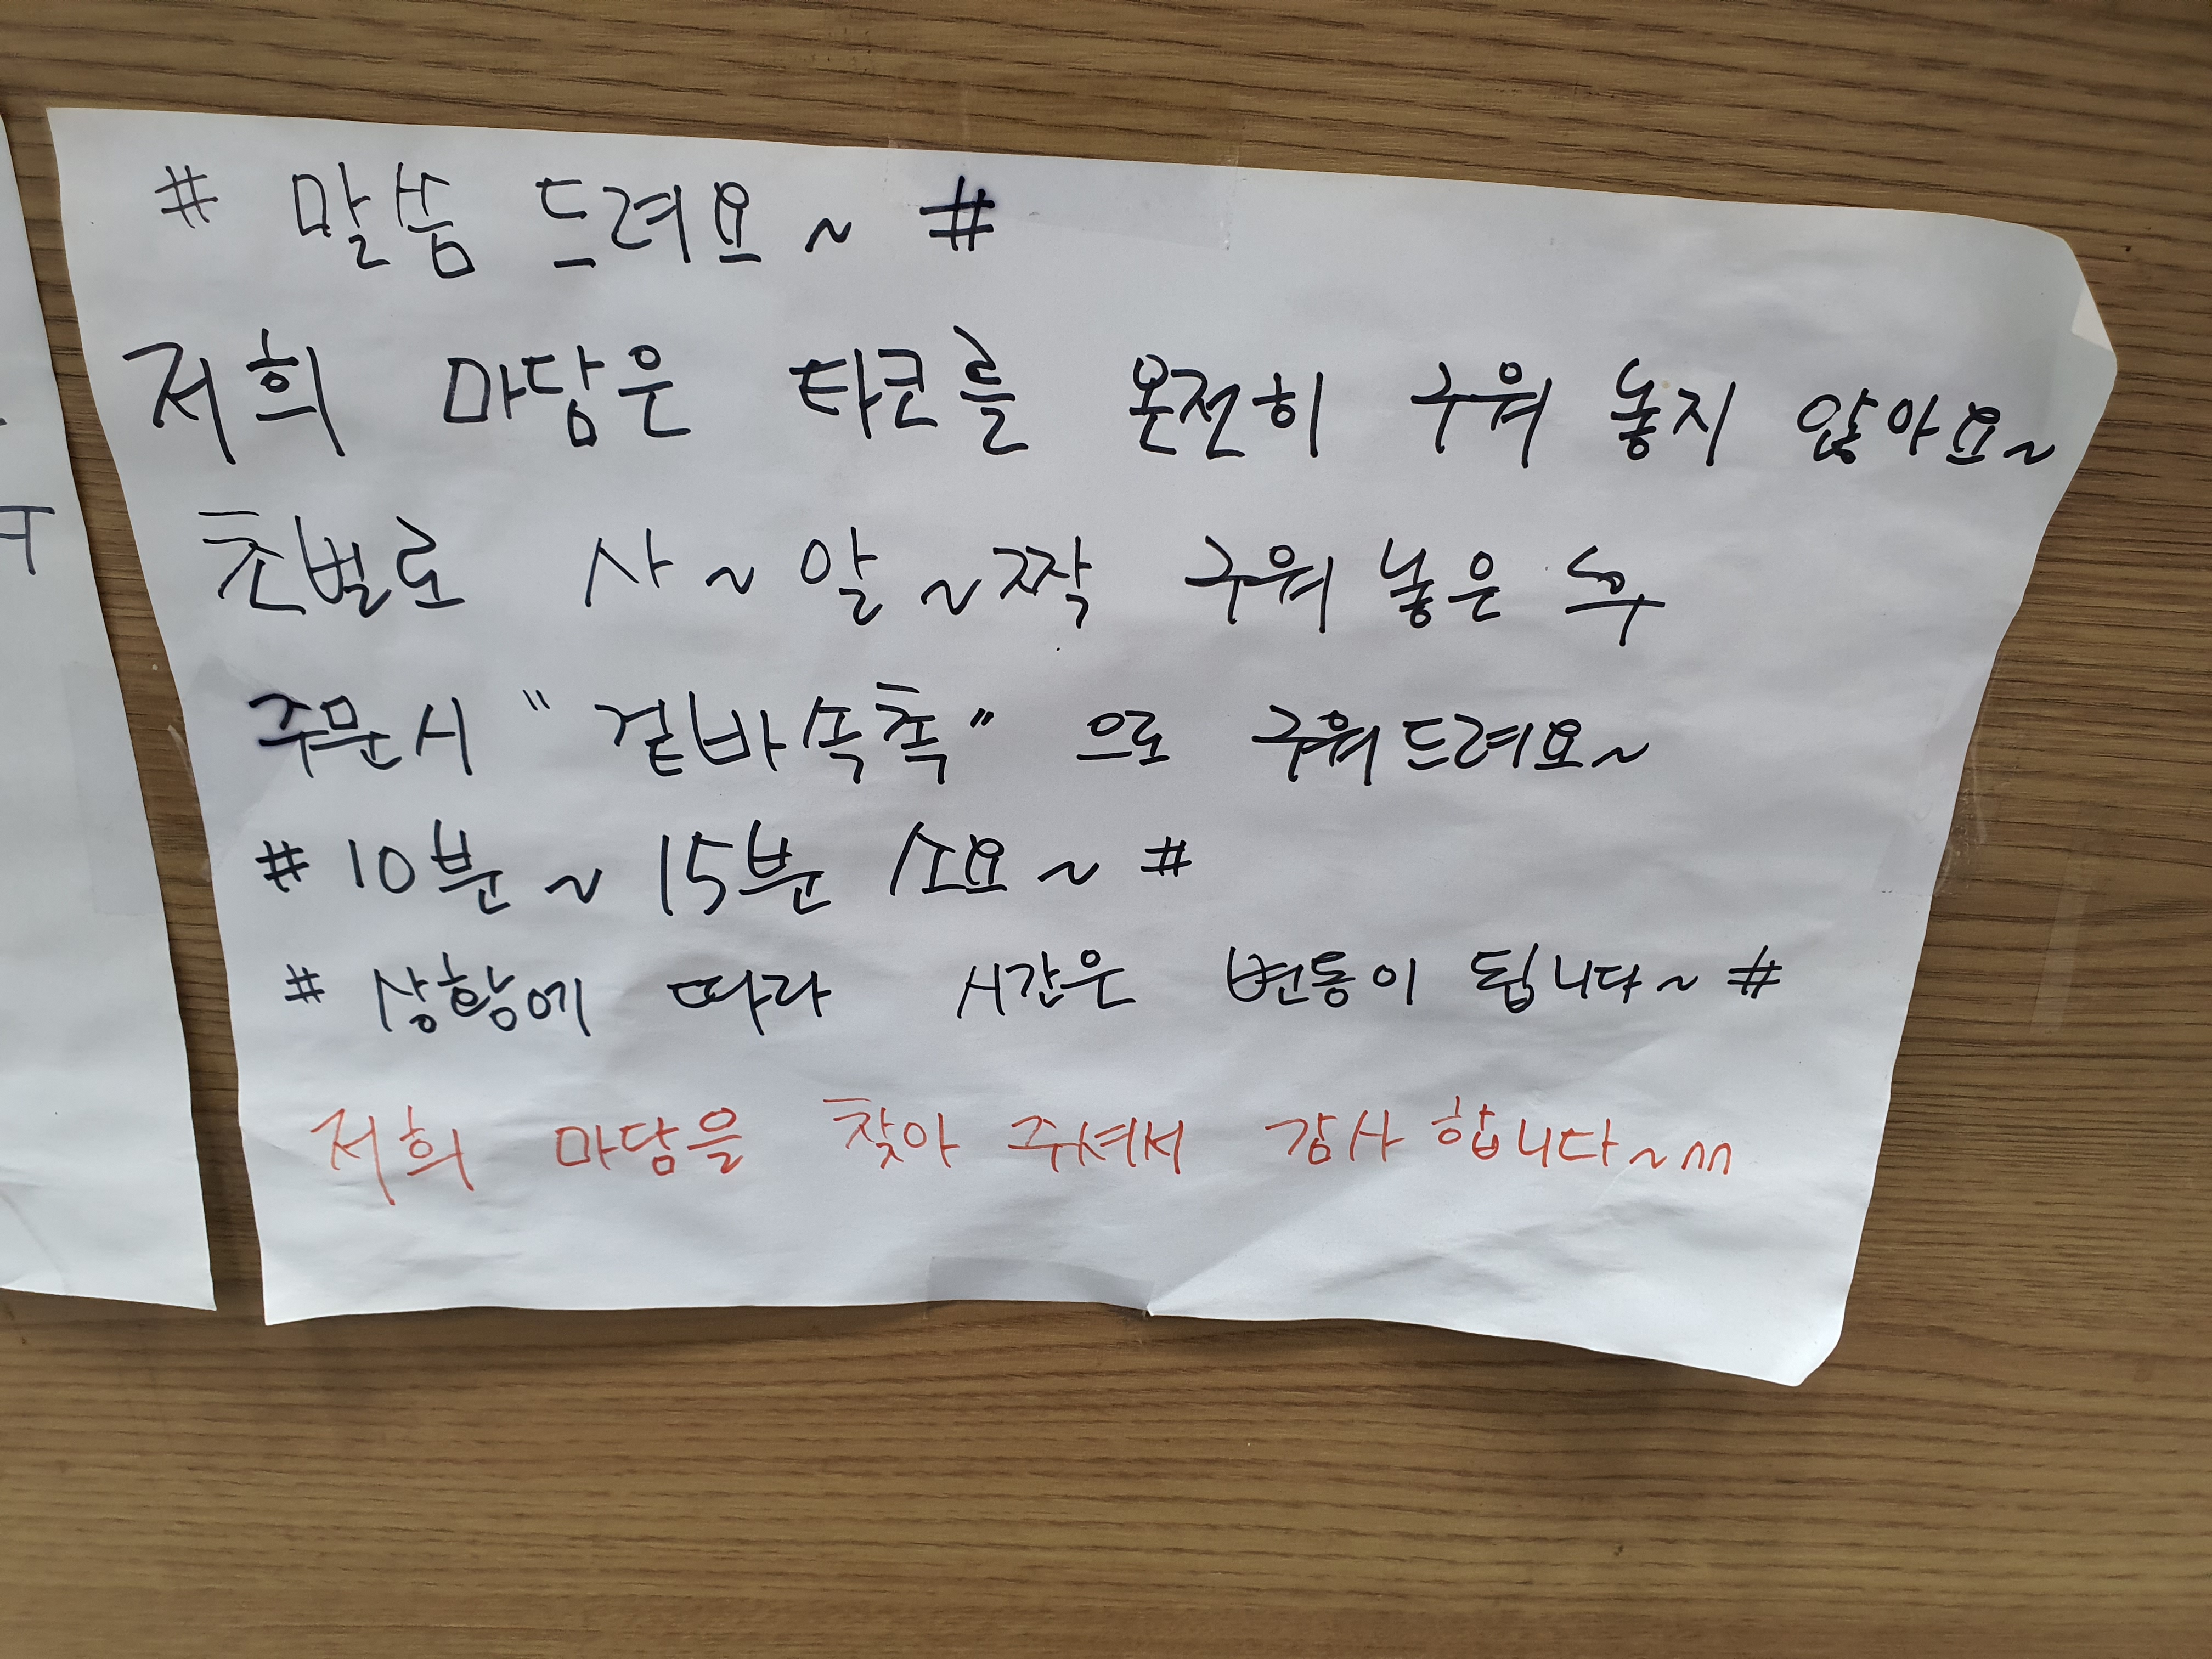 # 말씀 드려요~ #
저희 마담은 타코를 온전히 구워 놓지 않아요~
초벌로 사~알~짝 구워 놓은 후
주문시 "겉바속촉" 으로 구워드려요~
# 10분~15분 소요~ #
# 상황에 따라 시간은 변동이 됩니다~ #
저희 마담을 찾아 주셔서 감사 합니다~^^